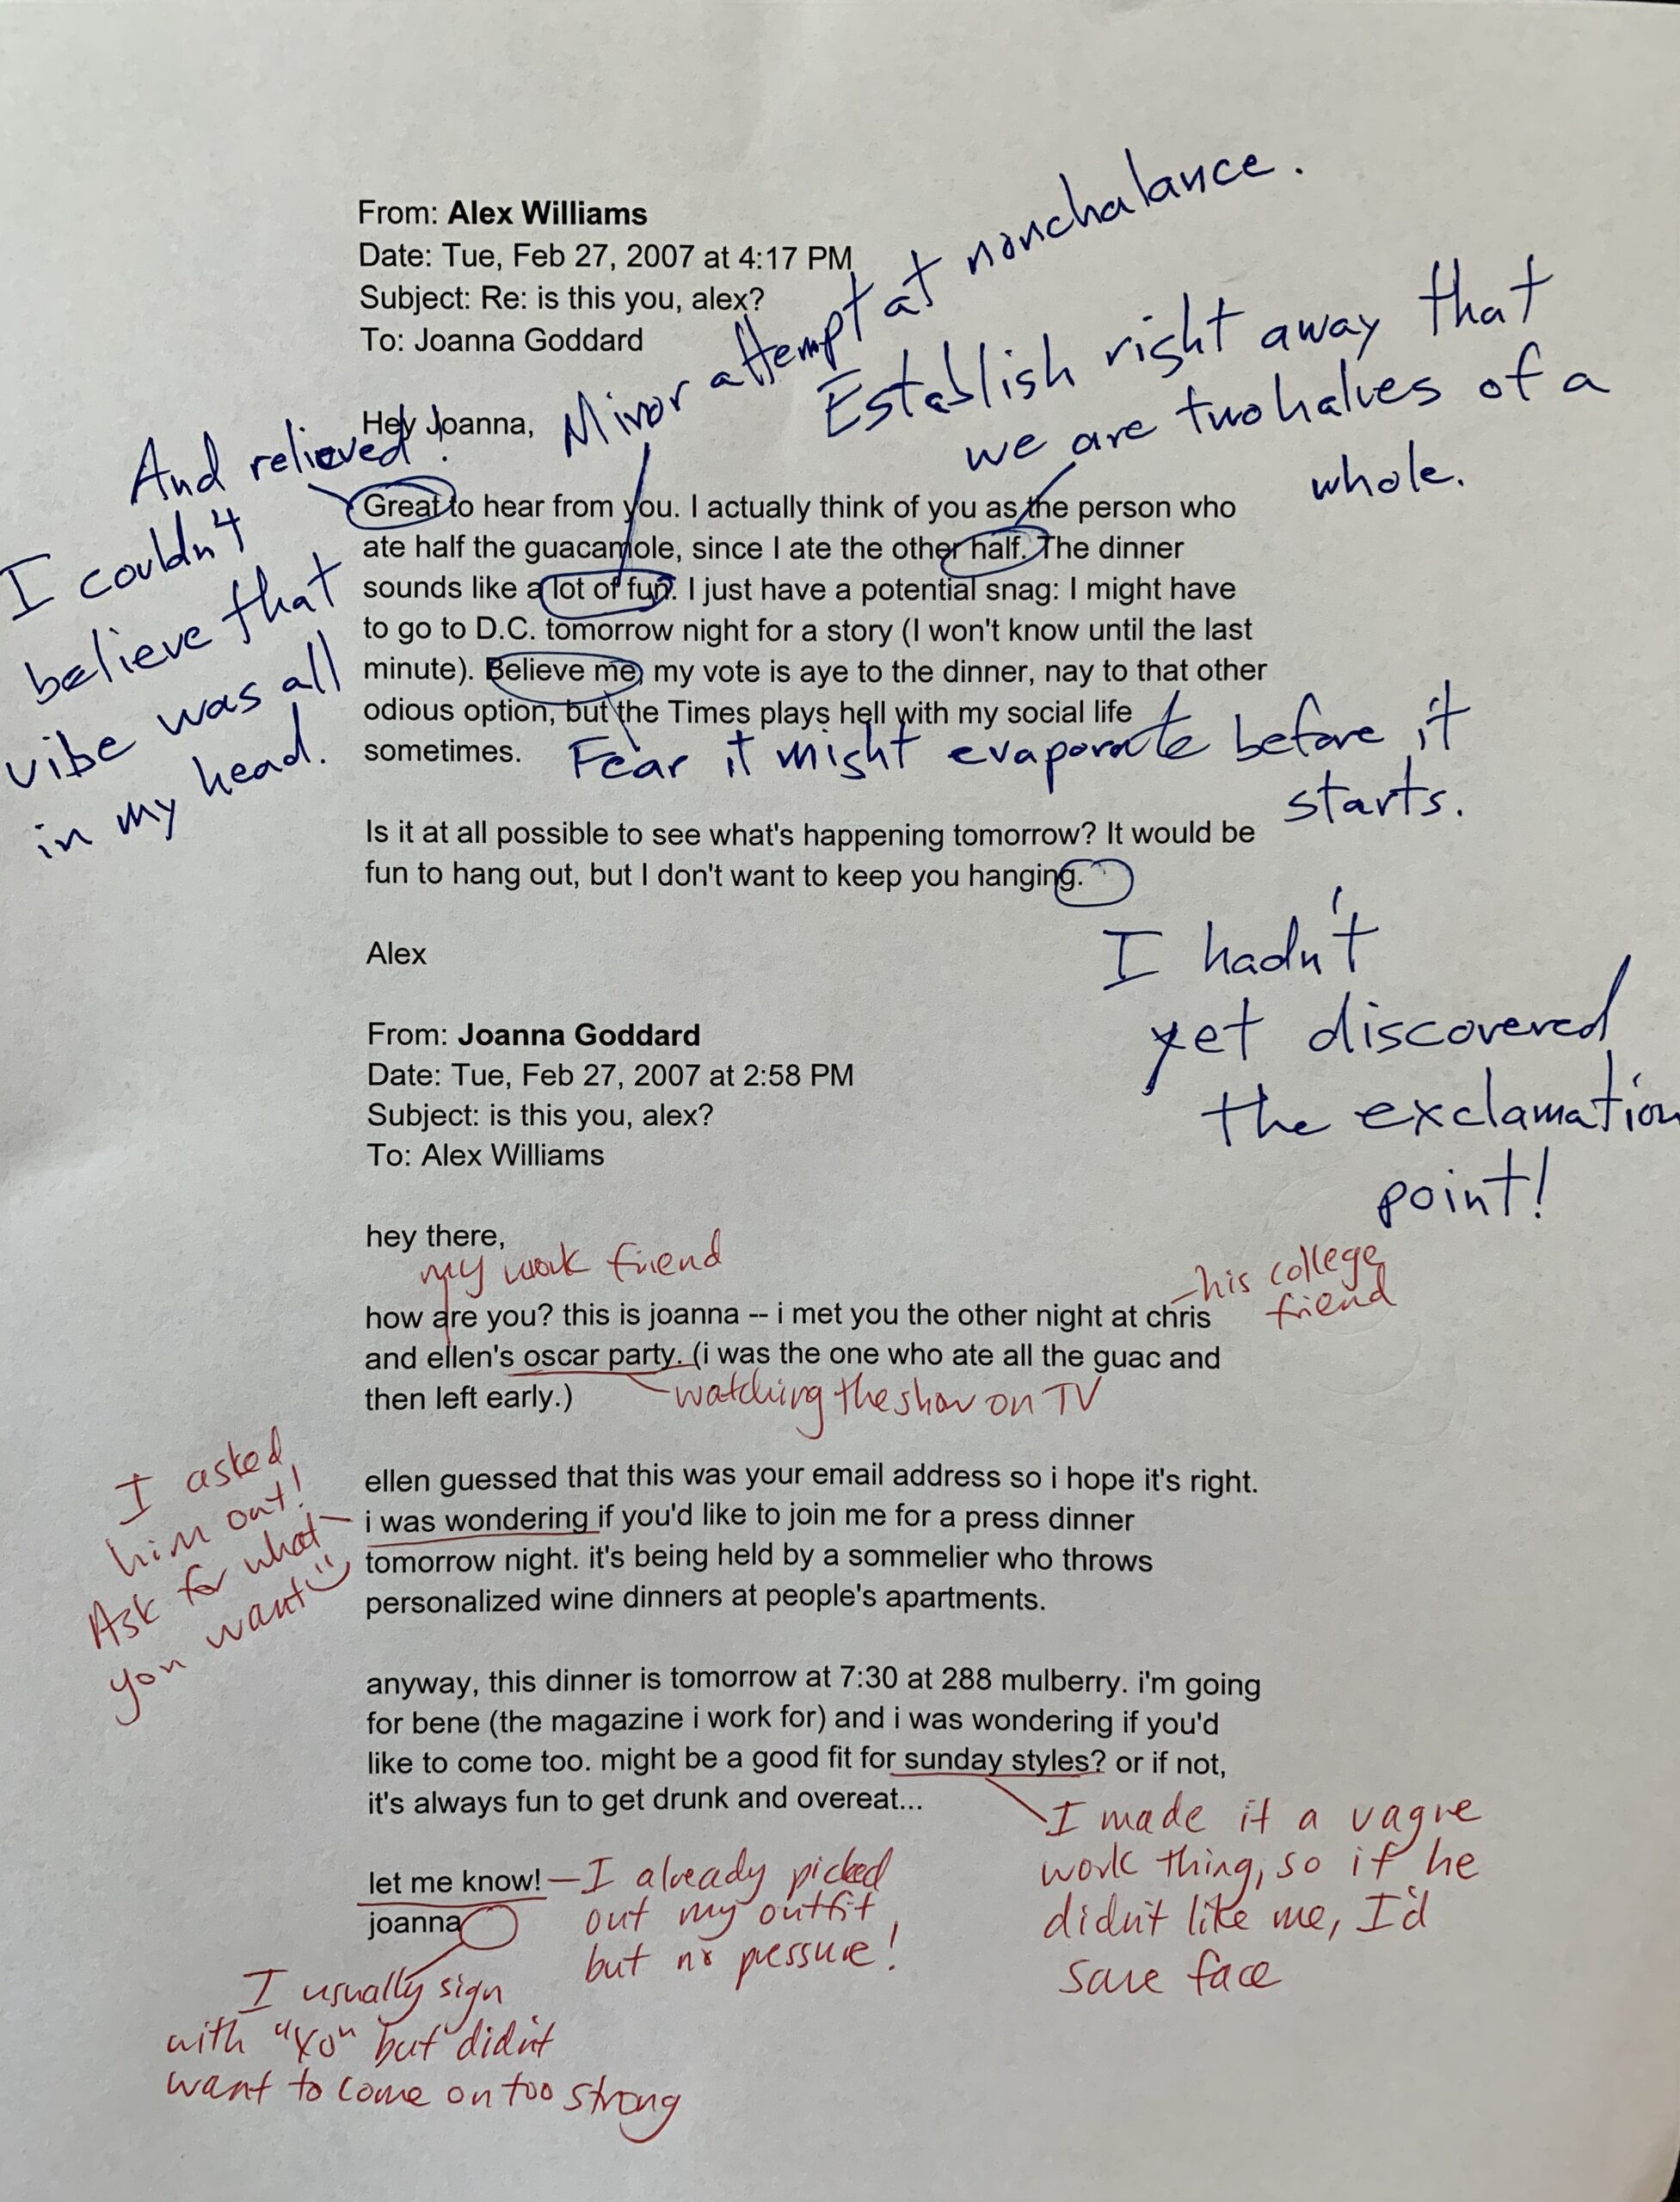 From: Alex Williams
Date: Tue, Feb 27, 2007 at 4:17 PM
Subject: Re: is this you, alex?
To: Joanna Goddard
Minor attempt at nonchalance.
Establish right away that
we are two halves of a
whole.
Hey Joanna,
And relieved!
I couldn't
believe that
vibe was all
in my head.
Great to hear from you. I actually think of you as the person who
ate half the guacamole, since I ate the other half. The dinner
sounds like a lot of fun. I just have a potential snag: I might have
to go to D.C. tomorrow night for a story (I won't know until the last
minute). Believe me, my vote is aye to the dinner, nay to that other
odious option, but the Times plays hell with my social life
sometimes.
Fear it might evaporate before it
starts.
Is it at all possible to see what's happening tomorrow? It would be
fun to hang out, but I don't want to keep you hanging.
I hadn't
yet discovered
the exclamation
point!
Alex
From: Joanna Goddard
Date: Tue, Feb 27, 2007 at 2:58 PM
Subject: is this you, alex?
To: Alex Williams
hey there,
my work friend
his college
friend
how are you? this is joanna -- i met you the other night at chris
and ellen's oscar party. (i was the one who ate all the guac and
then left early.)
watching the show on TV
I asked
him out!
Ask for what
you want
ellen guessed that this was your email address so i hope it's right.
i was wondering if you'd like to join me for a press dinner
tomorrow night. it's being held by a sommelier who throws
personalized wine dinners at people's apartments.
anyway, this dinner is tomorrow at 7:30 at 288 mulberry. i'm going
for bene (the magazine i work for) and i was wondering if you'd
like to come too. might be a good fit for sunday styles? or if not,
it's always fun to get drunk and overeat...
I made it a vague
work thing, so if he
didn't like me, I'd
save face
let me know!
joanna
I already picked
out my outfit
but no pressure!
I usually sign
with "XO" but didn't
want to come on too strong